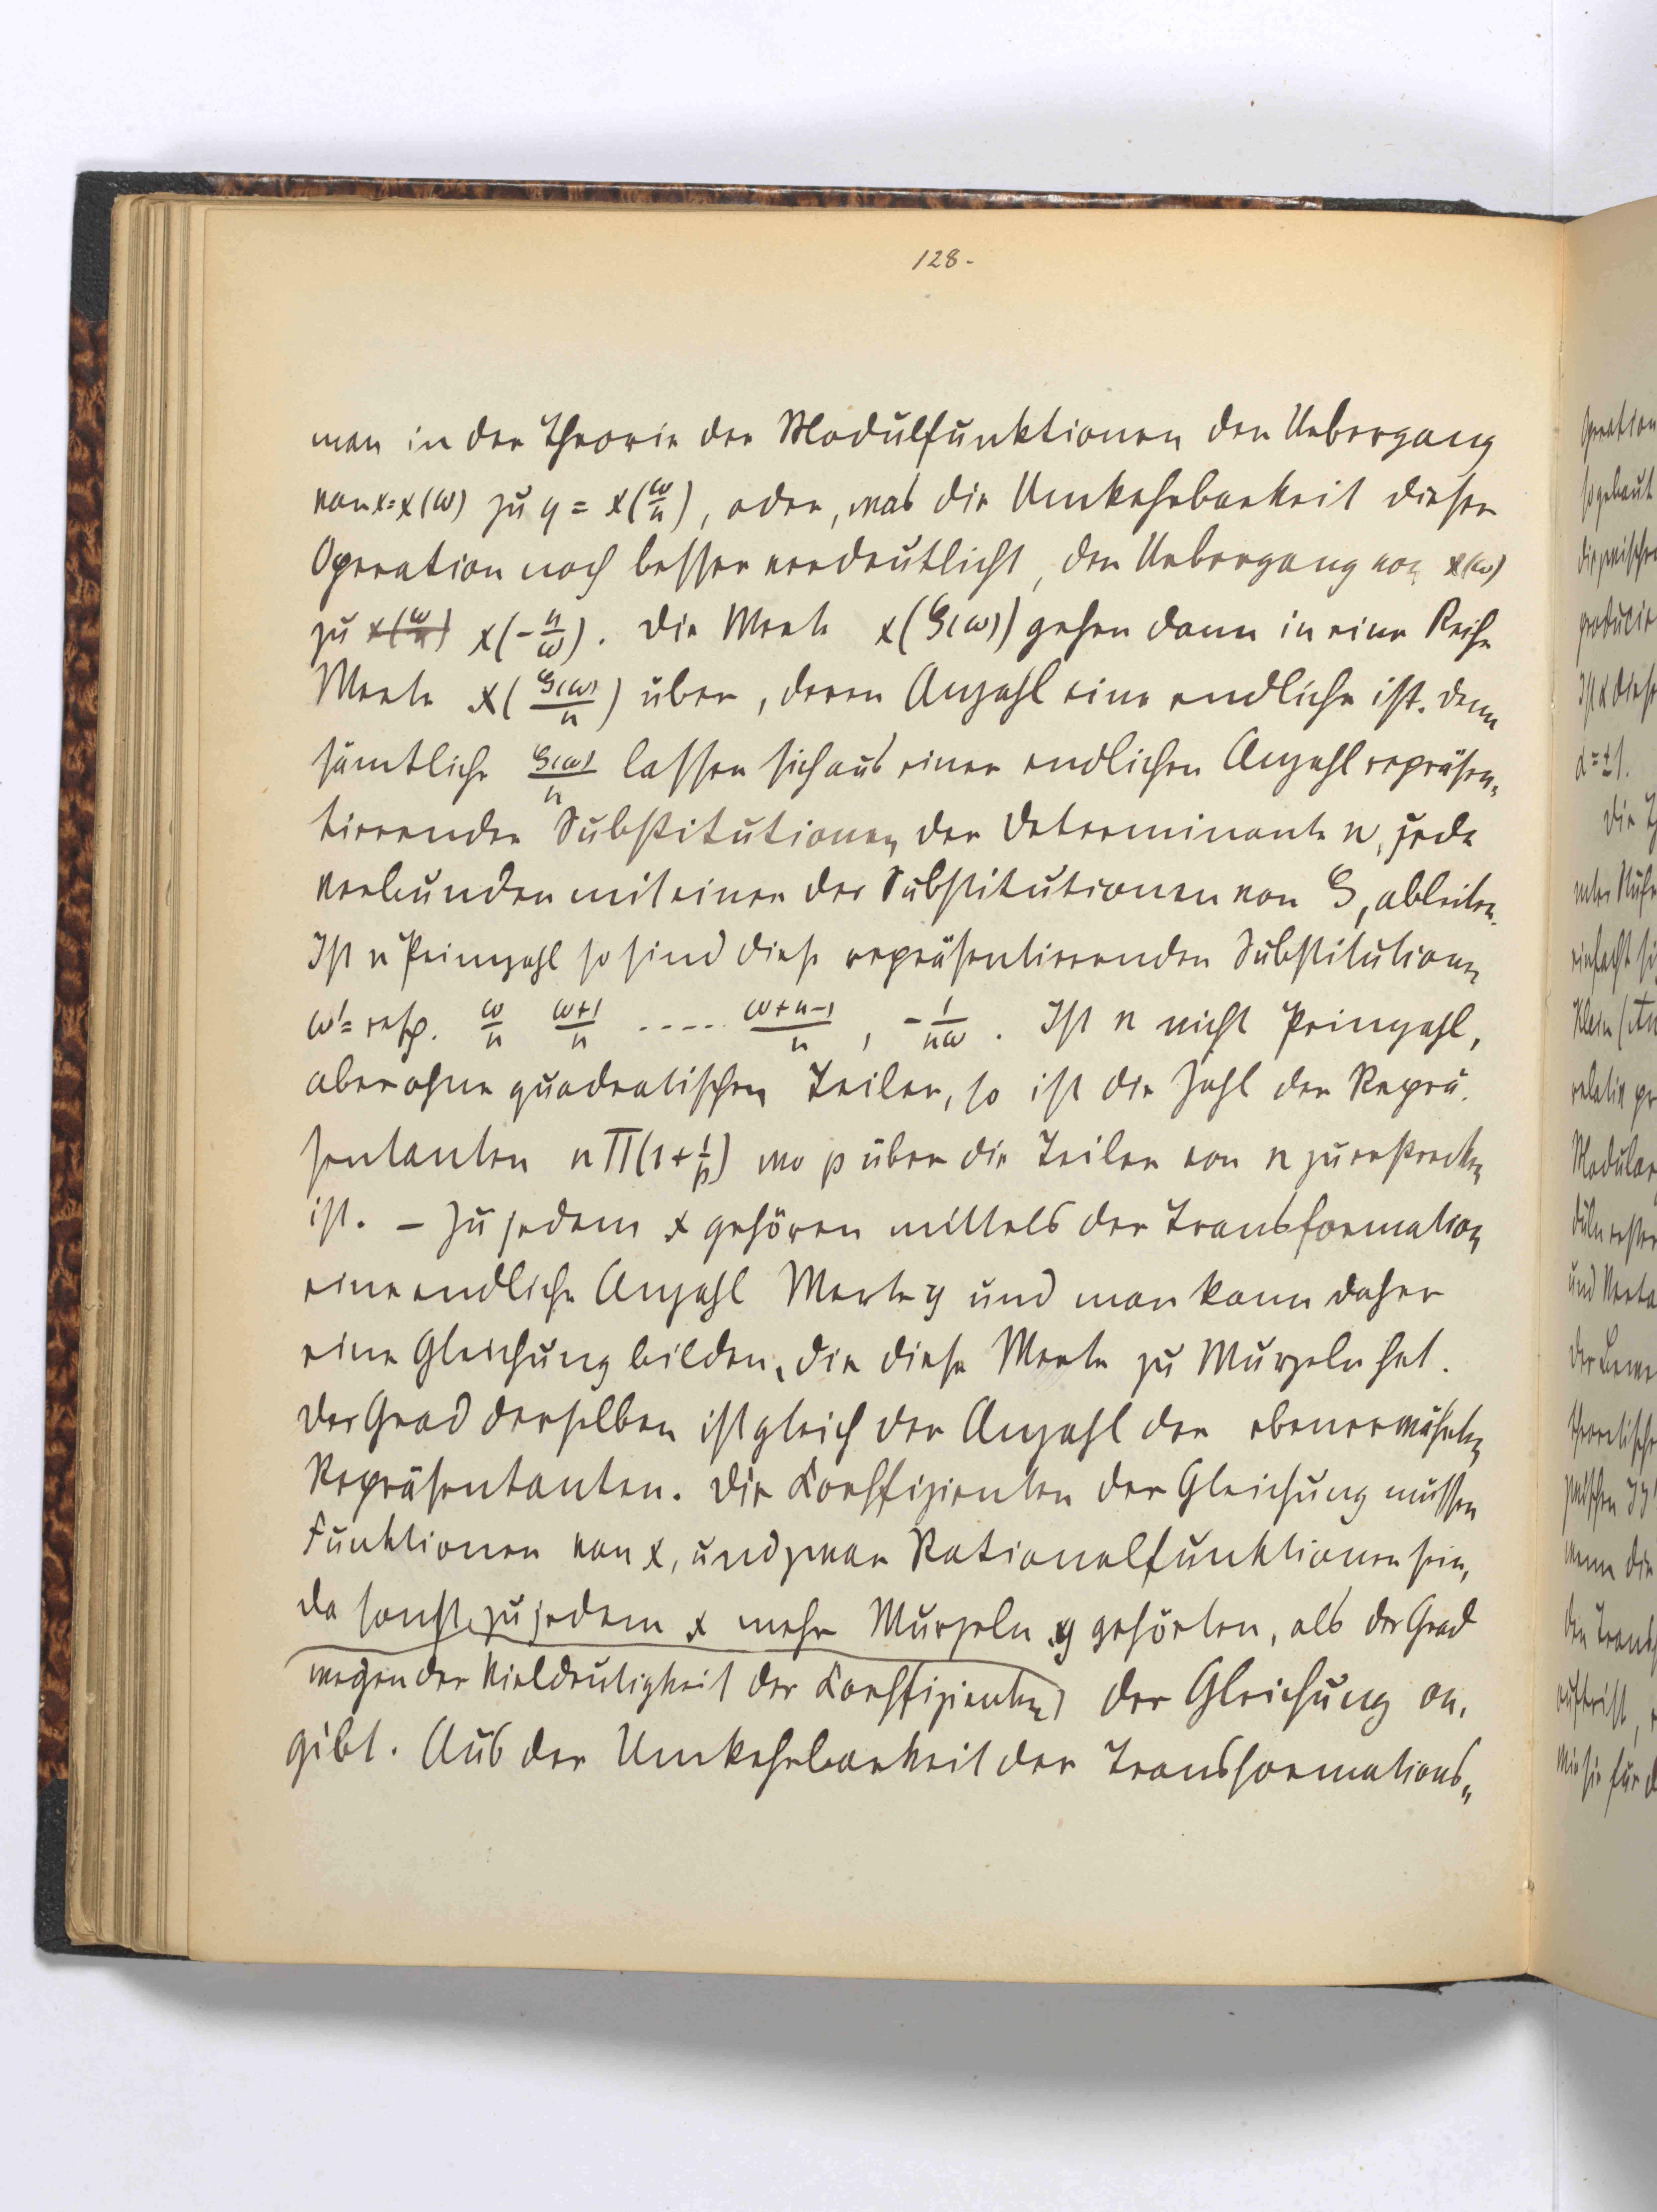 128.
man in der Theorie der Modulfunktionen den Uebergang
von x=x(ω) zu y = x(ω/n), oder, was die Umkehrbarkeit dieser
Operation noch besser verdeutlicht, den Uebergang von x(ω)
zu x(ω/n) x(-n/ω). Die Werte x(S(ω)) gehen dann in eine Reihe
Werte x(S(ω)/n) über, deren Anzahl eine endliche ist. Denn
sämtliche S(ω)/n lassen sich aus einer endlichen Anzahl repräsen„
tierender Substitutionen der Determinante n, jede
verbunden mit einer der Substitutionen von S, ableiten.
Ist n Primzahl so sind diese repräsentierenden Substitutionen
ω'= resp. ω/n (ω+1)/n ..... (ω+n-1)/n, -1/nω. Ist n nicht Primzahl,
aber ohne quadratischen Teiler, so ist die Zahl der Reprä.
sentanten nΠ(1+1/p) wo p über die Teiler von n zu erstrecken
ist. – Zu jedem x gehören mittels der Transformation
eine endliche Anzahl Werte y und man kann daher
eine Gleichung bilden, die diese Werte zu Wurzeln hat.
Der Grad derselben ist gleich der Anzahl der ebenerwähnten
Repräsentanten. Die Coeffizienten der Gleichung müssen
Funktionen von x, und zwar Rationalfunktionen sein,
da sonst zu jedem x mehr Wurzeln y gehörten, als der Grad
wegen der Vieldeutigkeit der Coeffizienten der Gleichung an.
gibt. Aus der Umkehrbarkeit der Transformations„